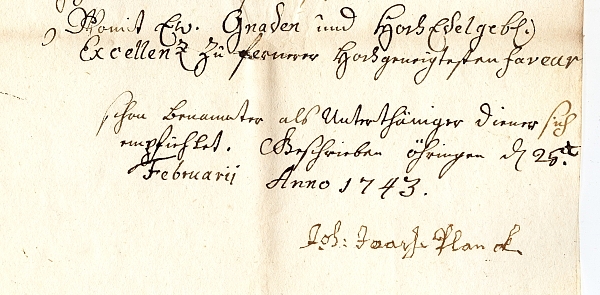 Womit Ew. Gnaden und HochEdelgebh.
Excellenz zu fernerer Hochgeneigtesten faveur
schon benamster als Unterthäniger Diener sich
empfichlet. Geschrieben öhringen d 25.t
Februarii Anno 1743.
Joh: Planck